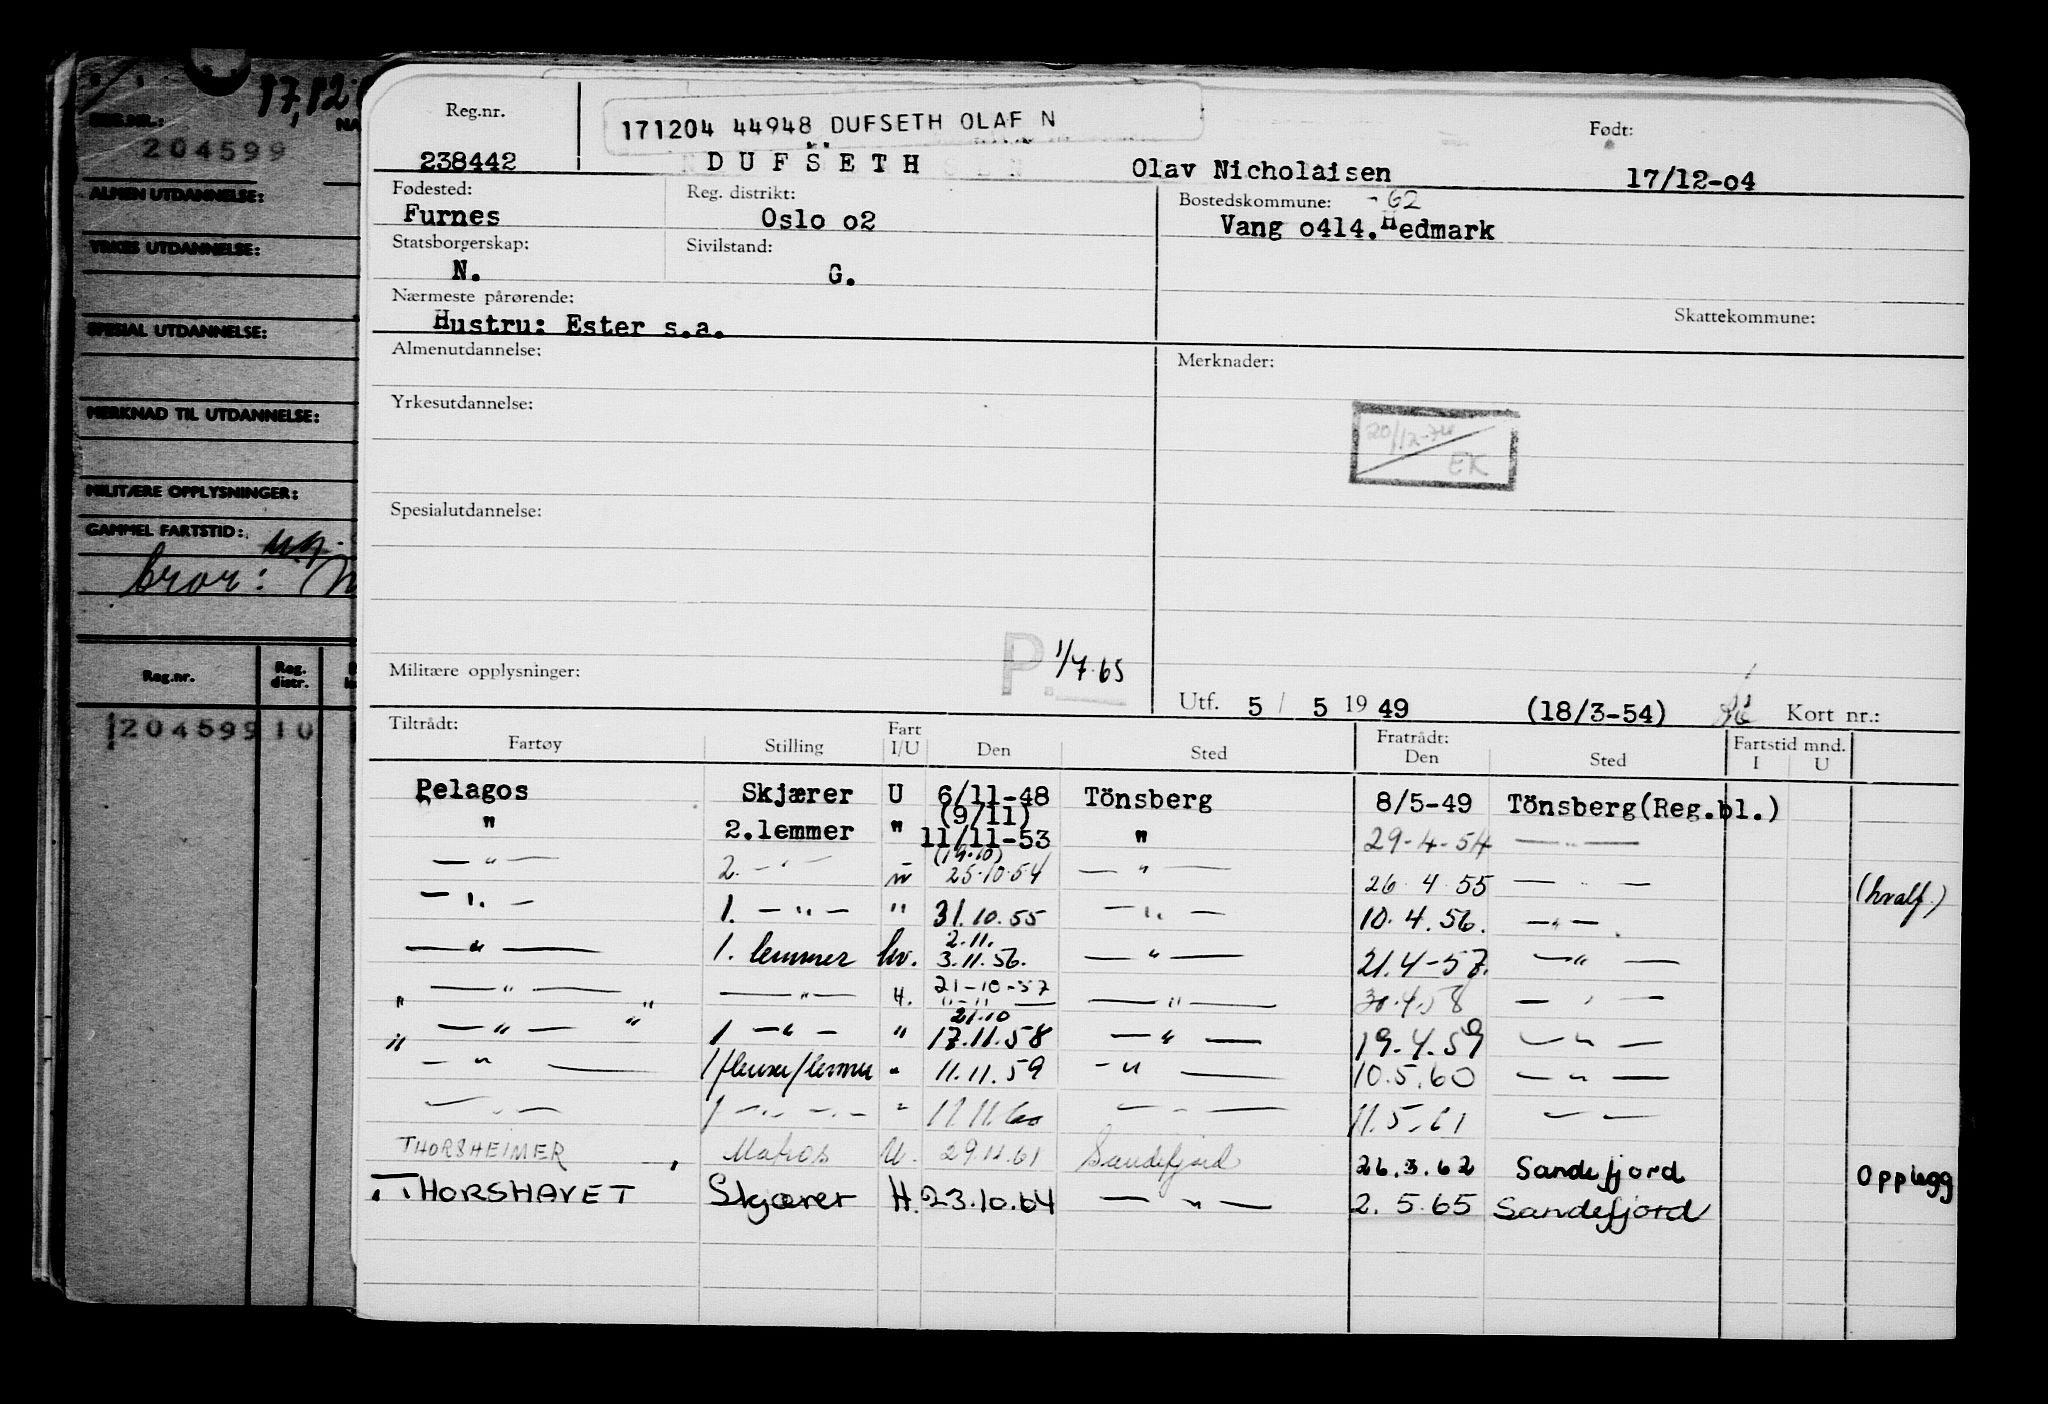 17,12
REG.NR.:
204599
ALMEN UTDANNELSE:
YRKES UTDANNELSE:
SPESIAL UTDANNELSE:
MERKNAD TIL UTDANNELSE:
MILITÆRE OPPLYSNINGER:
GAMMEL FARTSTID:
bror:
Reg.nr. Reg. distr.
204599 10
Reg.nr. 171204 44948 DUFSETH OLAF N Født:
238442 DUFSETH Olav Nicholaisen 17/12-04
Fødested: Reg. distrikt: Bostedskommune: -62
Furnes Oslo 02 Vang 0414. Hedmark
Statsborgerskap: Sivilstand:
N. G.
Nærmeste pårørende: Skattekommune:
Hustru: Ester s.a.
Almenutdannelse: Merknader:
Yrkesutdannelse:
20/12-74
EK
Spesialutdannelse:
Militære opplysninger: P. 1/7.65
Utf. 5 / 5 1949 (18/3-54) Kort nr.:
Tiltrådt: Fart Fratrådt: Fartstid mnd.
Fartøy Stilling I/U Den Sted Den Sted I U
Pelagos Skjærer U 6/11-48 Tönsberg 8/5-49 Tönsberg(Reg.bl.)
(9/11)
" 2.lemmer " 11/11-53 " 29-4-54 — " —
(19.10)
— " — 2. — " — " 25.10.54 — " — 26.4.55 — " — (hvalf.)
— " — 1. — " — " 31.10.55 — " — 10.4.56. — " —
2.11.
— " — 1. lemmer hv. 3.11.56. — " — 21.4-57. — " —
21-10-57
" — " — " — " — H. " - " — — " — 30.4.58 — " —
21.10
" — " — " 1 — " — " 17.11.58 — " — 19.4.59 — " —
— " — 1/flenser/lemmer " 11.11.59 — " — 10.5.60 — " —
— " — 1 — " — " — " 11.11.60 — " — 11.5.61 — " —
THORSHEIMER Matros U. 29.11.61 Sandefjord 26.3.62 Sandefjord Opplegg
THORSHAVET Skjærer H. 23.10.64 — " — 2.5.65 Sandefjord